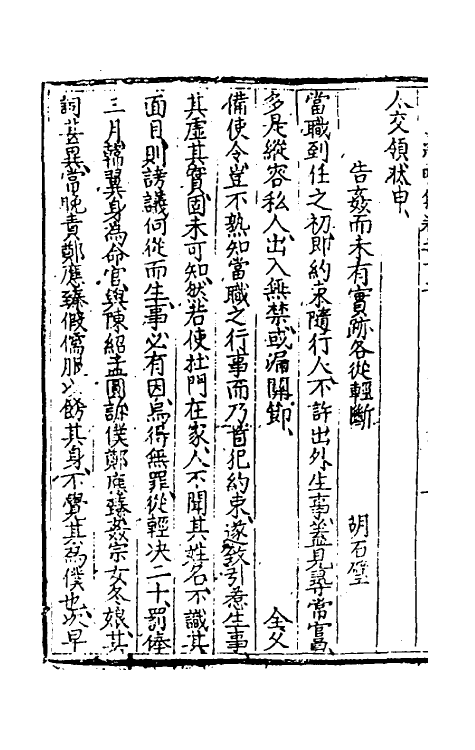 人交領狀申
告姦而未有實跡各從輕斷　胡石壁
當職到任之初即約束隨行人不許出外生事蓋見尋常官
多是縱容私人出入無禁或漏關節　仝父
備使令豈不熟知當職之行事而乃首犯約束遂致引惹生事
其虛其實固未可知然若使杜門在家人不聞其姓名不識其
面目則謗議何從而生事必有因烏得無罪從輕决二十罰俸
三月韓翼身為命官與陳紹孟圓訴僕鄭應臻姦宗女冬娘其
詞甚異常晚責鄭應臻假儒服以飭其身不覺其為僕也次早